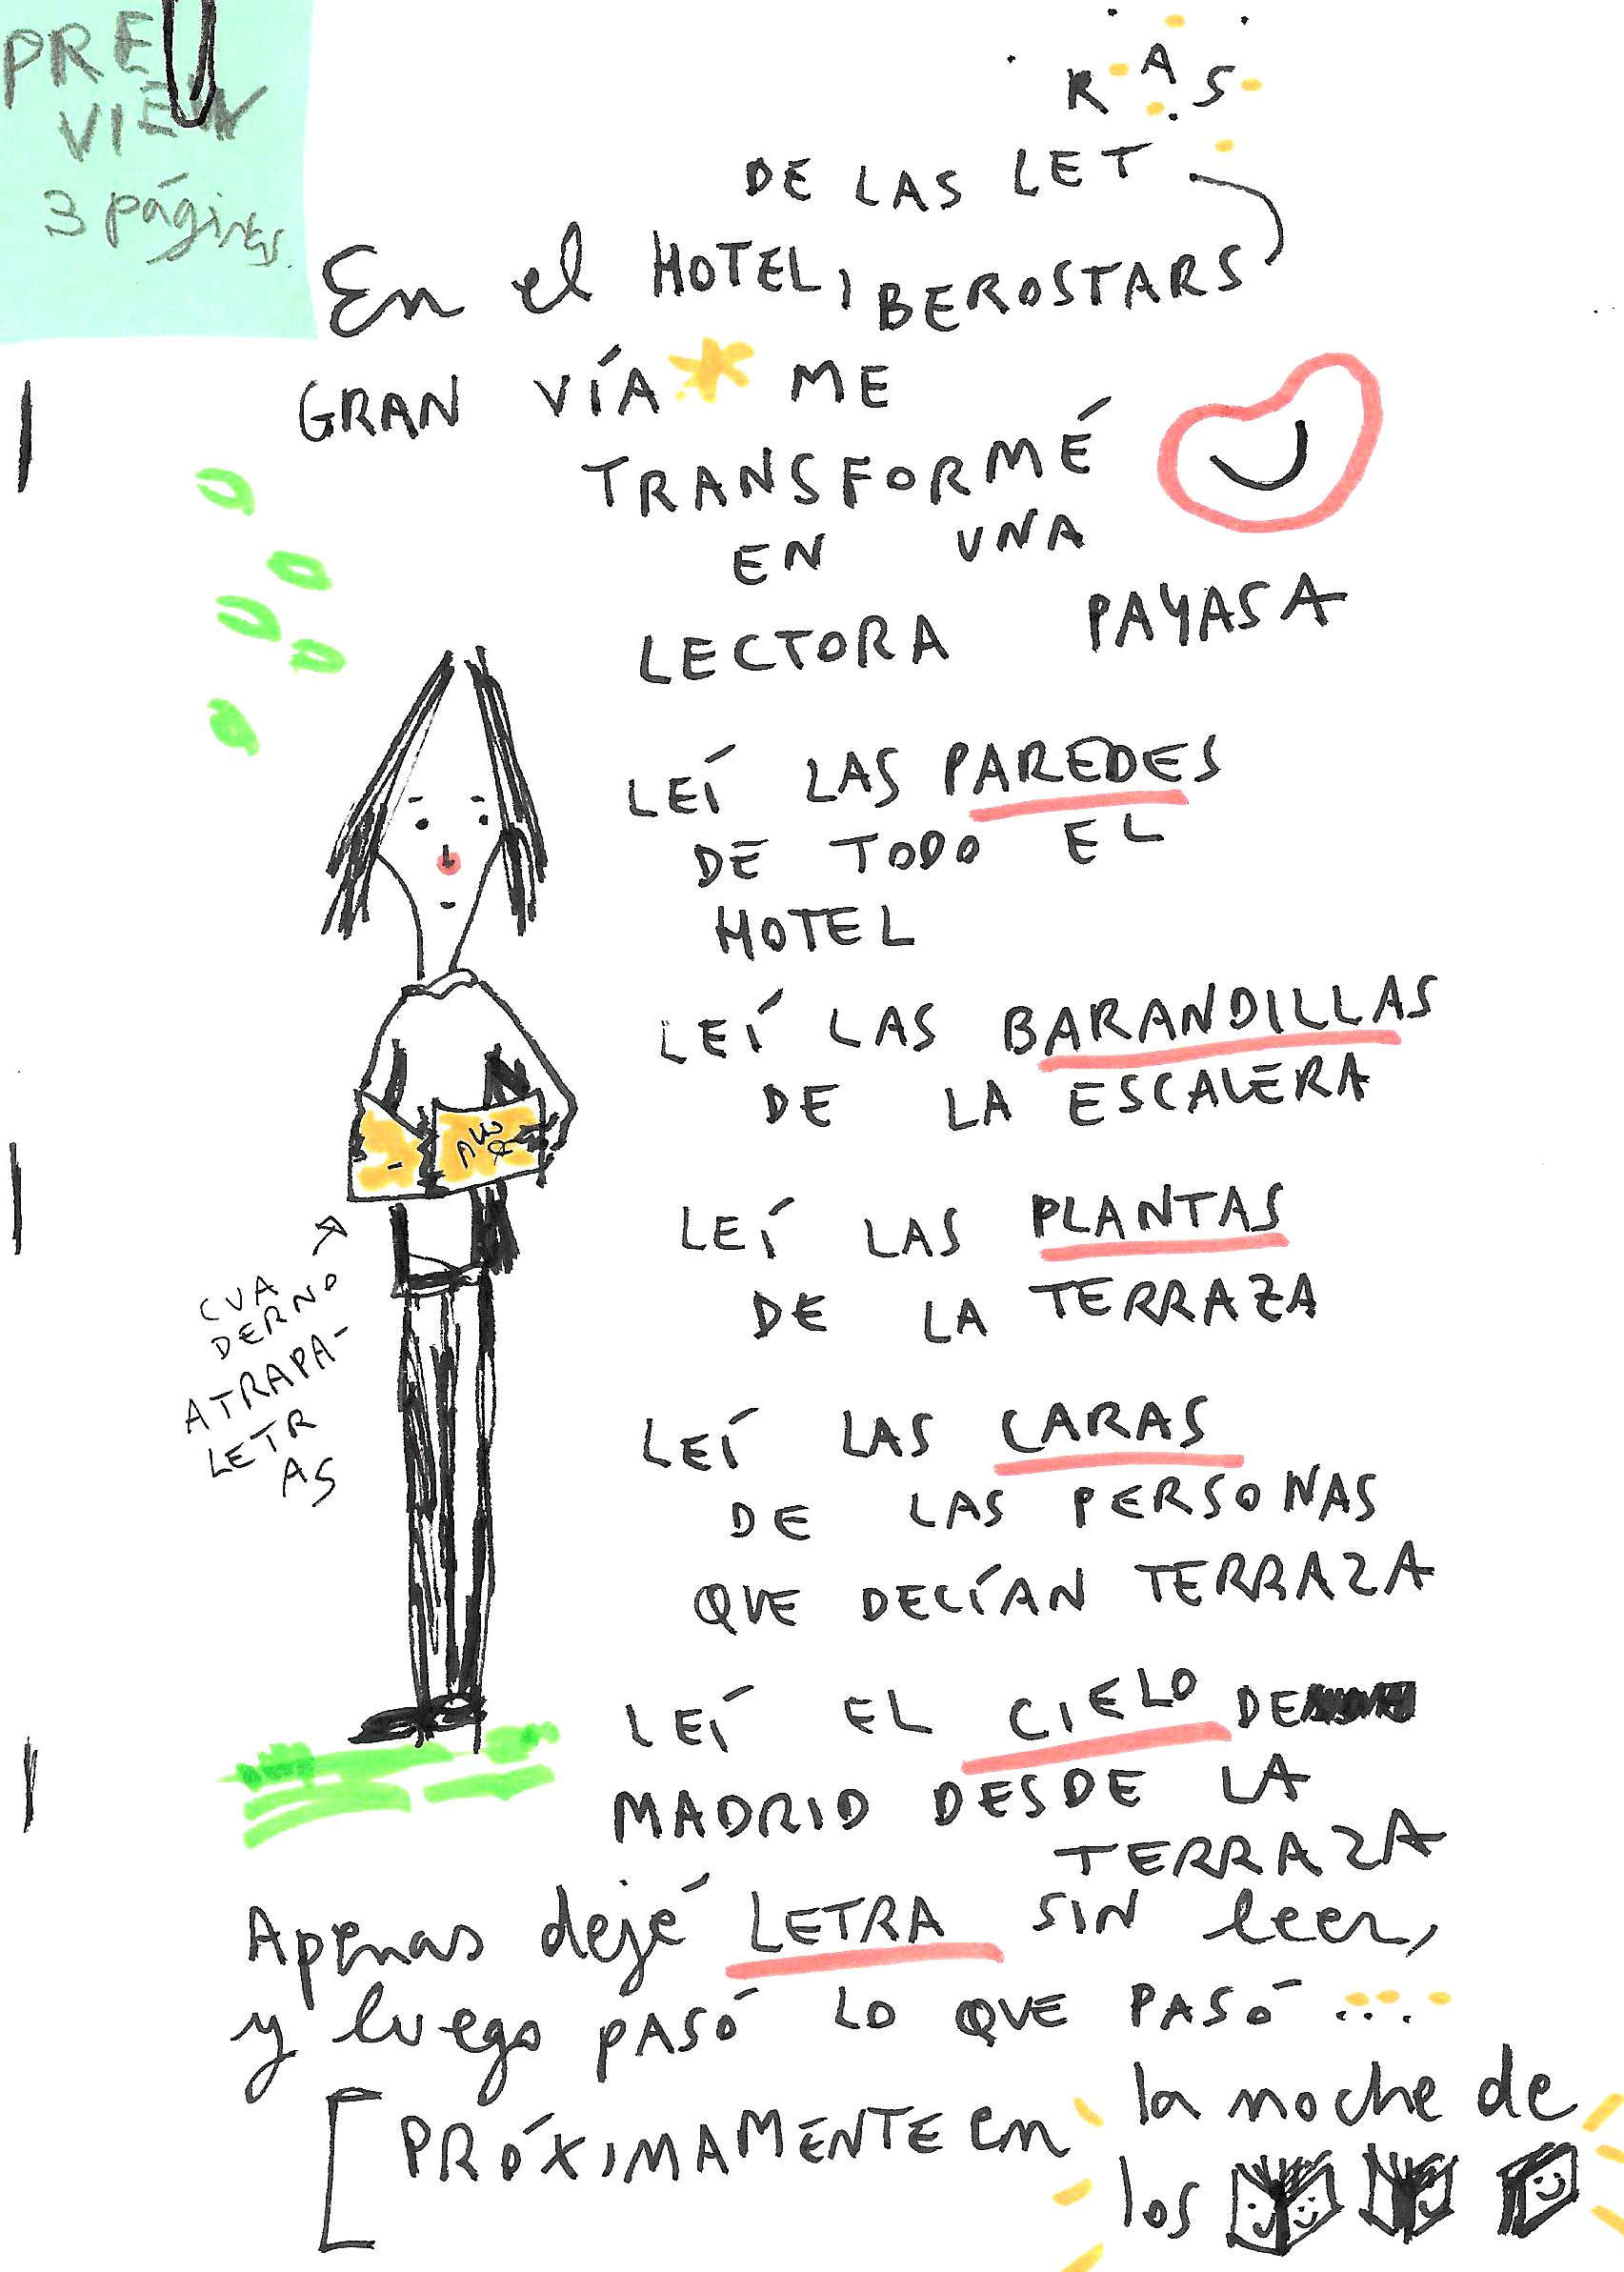 PRE
VIEW
3 páginas.
RAS
DE LAS LET
En el HOTEL, IBEROSTARS
GRAN VÍA * ME
TRANSFORMÉ
EN UNA
LECTORA PAYASA
LEÍ LAS PAREDES
DE TODO EL
HOTEL
LEÍ LAS BARANDILLAS
DE LA ESCALERA
LEÍ LAS PLANTAS
DE LA TERRAZA
LEÍ LAS CARAS
DE LAS PERSONAS
QUE DECÍAN TERRAZA
LEÍ EL CIELO DE
MADRID DESDE LA
TERRAZA
CUA
DERNO
ATRAPA-
LETR
AS
Apenas dejé LETRA SIN leer,
y luego PASÓ LO QUE PASÓ ...
[PRÓXIMAMENTE en la noche de
los